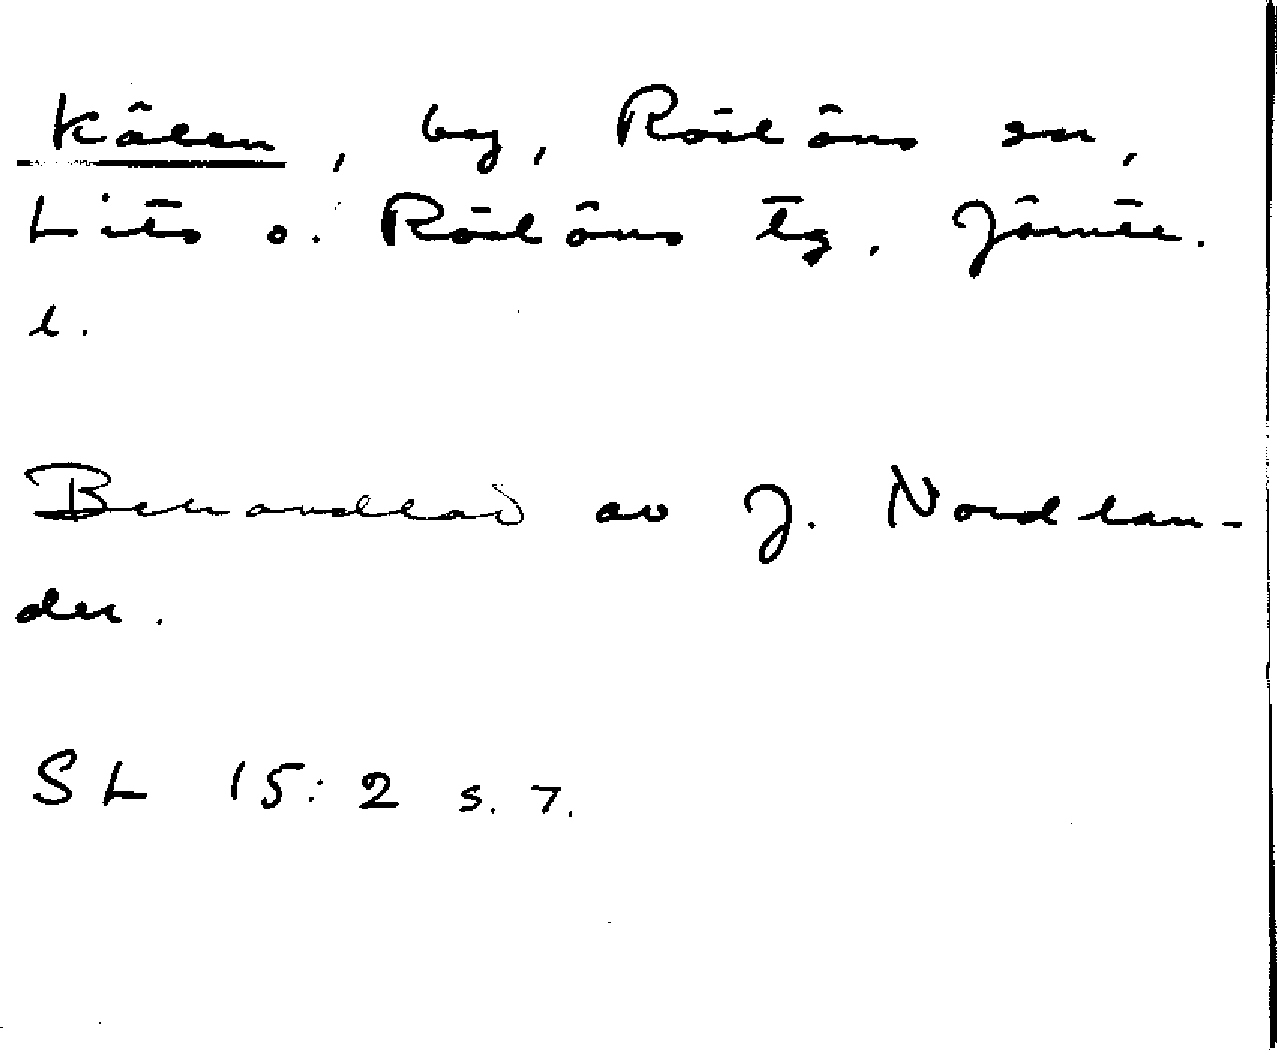 Kålen, by, Rödöns sn,
Lits o. Rödöns tg. Jämtl.
l.
Behandlad av J. Nordlan-
der.
SL 15:2 s. 7.